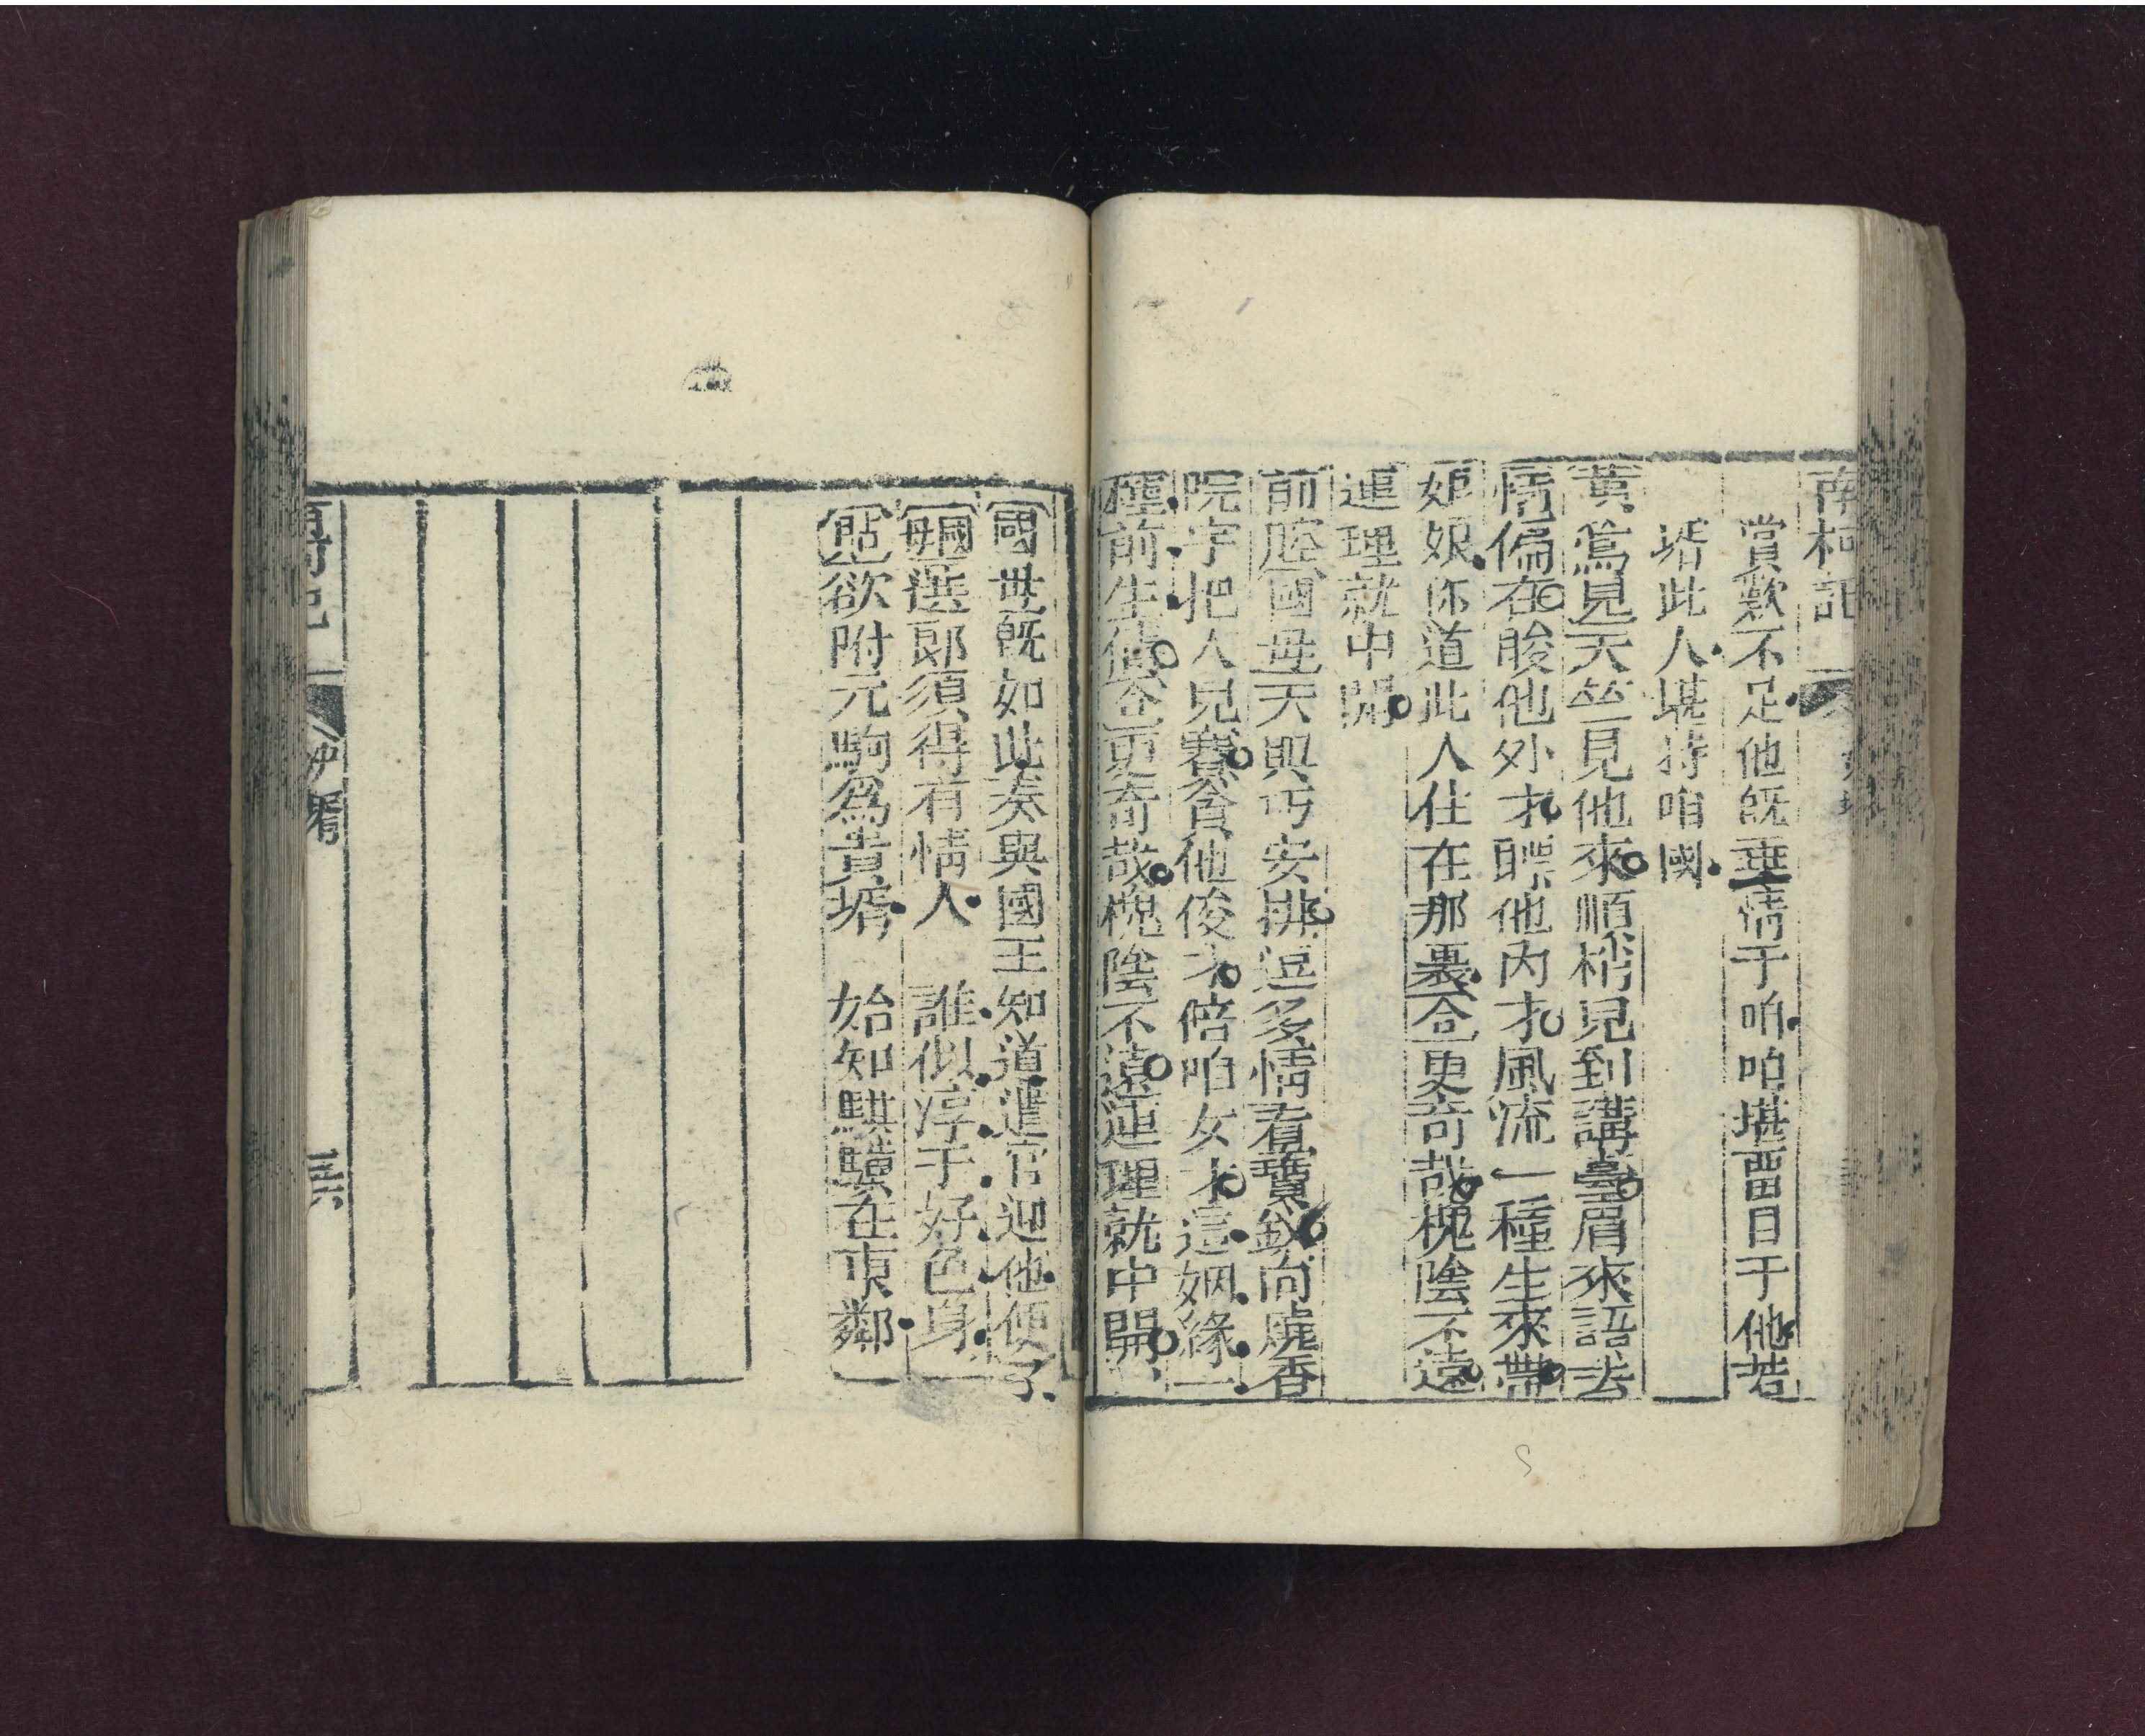 南柯記
賞歎不足他旣垂情于咱咱堪畱目于他若
壻此人堪持咱國
黃鶯見天竺見他來順梢見到講臺眉來語去
情偏在睃他外才聽他內才風流一種生來帶
娘娘你道此人住在那裏合更奇哉槐陰不遠
連理就中開
前腔國母天與巧安排逗多情看寶釵向燒香
院宇把人兒賽貪他俊才倍咱女才這姻緣一
種前生債合更奇哉槐陰不遠連理就中開
國母旣如此奏與國王知道遣官迎他便了
母國選郎須得有情人 誰似淳于好色身
貼欲附元駒爲貴壻 始知騏驥在東鄰